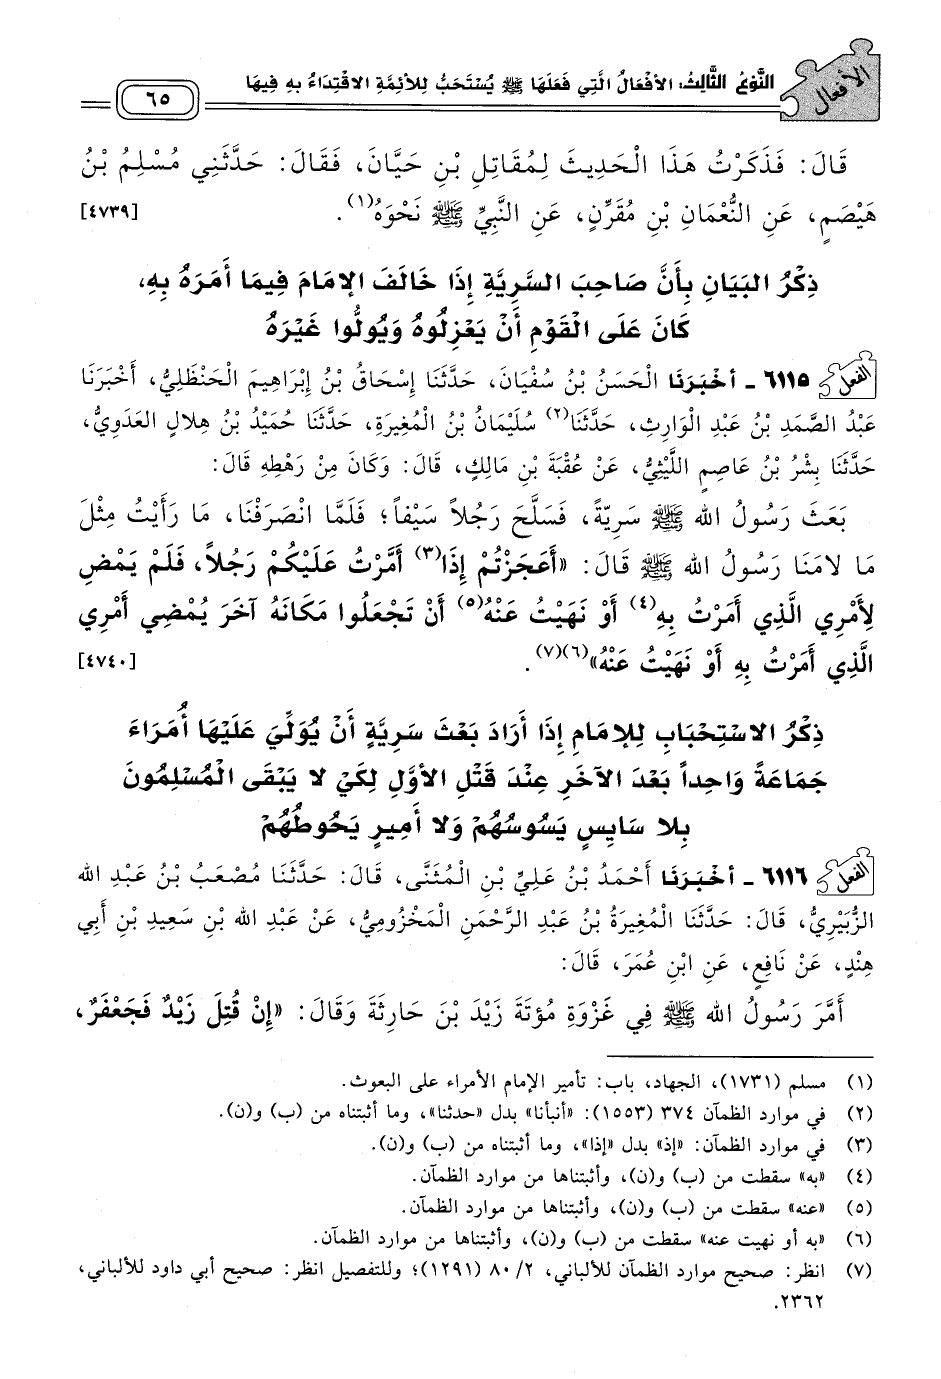 الأفعال
النَّوْعُ الثَّالِثُ: الأَفْعَالُ الَّتِي فَعَلَهَا ﷺ يُسْتَحَبُّ لِلأَئِمَّةِ الاقْتِدَاءُ بِهِ فِيهَا
٦٥
قَالَ: فَذَكَرْتُ هَذَا الْحَدِيثَ لِمُقَاتِلِ بْنِ حَيَّانَ، فَقَالَ: حَدَّثَنِي مُسْلِمُ بْنُ
هَيْصَمٍ، عَنِ النُّعْمَانِ بْنِ مُقَرِّنٍ، عَنِ النَّبِيِّ ﷺ نَحْوَهُ(١). [٤٧٣٩]
ذِكْرُ البَيَانِ بِأَنَّ صَاحِبَ السَّرِيَّةِ إِذَا خَالَفَ الإِمَامَ فِيمَا أَمَرَهُ بِهِ،
كَانَ عَلَى الْقَوْمِ أَنْ يَعْزِلُوهُ وَيُوَلُّوا غَيْرَهُ
الفعل ٦١١٥ - أَخْبَرَنَا الْحَسَنُ بْنُ سُفْيَانَ، حَدَّثَنَا إِسْحَاقُ بْنُ إِبْرَاهِيمَ الْحَنْظَلِيُّ، أَخْبَرَنَا
عَبْدُ الصَّمَدِ بْنُ عَبْدِ الْوَارِثِ، حَدَّثَنَا(٢) سُلَيْمَانُ بْنُ الْمُغِيرَةِ، حَدَّثَنَا حُمَيْدُ بْنُ هِلالٍ العَدَوِيُّ،
حَدَّثَنَا بِشْرُ بْنُ عَاصِمٍ اللَّيْثِيُّ، عَنْ عُقْبَةَ بْنِ مَالِكٍ، قَالَ: وَكَانَ مِنْ رَهْطِهِ قَالَ:
بَعَثَ رَسُولُ الله ﷺ سَرِيَّةً، فَسَلَّحَ رَجُلاً سَيْفاً؛ فَلَمَّا انْصَرَفْنَا، مَا رَأَيْتُ مِثْلَ
مَا لامَنَا رَسُولُ الله ﷺ قَالَ: «أَعَجَزْتُمْ إِذَا(٣) أَمَّرْتُ عَلَيْكُمْ رَجُلاً، فَلَمْ يَمْضِ
لِأَمْرِي الَّذِي أَمَرْتُ بِهِ(٤) أَوْ نَهَيْتُ عَنْهُ(٥) أَنْ تَجْعَلُوا مَكَانَهُ آخَرَ يُمْضِي أَمْرِي
الَّذِي أَمَرْتُ بِهِ أَوْ نَهَيْتُ عَنْهُ»(٦)(٧). [٤٧٤٠]
ذِكْرُ الاسْتِحْبَابِ لِلإِمَامِ إِذَا أَرَادَ بَعْثَ سَرِيَّةٍ أَنْ يُوَلِّيَ عَلَيْهَا أُمَرَاءَ
جَمَاعَةً وَاحِداً بَعْدَ الآخَرِ عِنْدَ قَتْلِ الأَوَّلِ لِكَيْ لا يَبْقَى الْمُسْلِمُونَ
بِلا سَايِسٍ يَسُوسُهُمْ وَلا أَمِيرٍ يَحُوطُهُمْ
الفعل ٦١١٦ - أَخْبَرَنَا أَحْمَدُ بْنُ عَلِيِّ بْنِ الْمُثَنَّى، قَالَ: حَدَّثَنَا مُصْعَبُ بْنُ عَبْدِ الله
الزُّبَيْرِيُّ، قَالَ: حَدَّثَنَا الْمُغِيرَةُ بْنُ عَبْدِ الرَّحْمَنِ الْمَخْزُومِيُّ، عَنْ عَبْدِ الله بْنِ سَعِيدِ بْنِ أَبِي
هِنْدٍ، عَنْ نَافِعٍ، عَنِ ابْنِ عُمَرَ، قَالَ:
أَمَّرَ رَسُولُ الله ﷺ فِي غَزْوَةِ مُؤْتَةَ زَيْدَ بْنَ حَارِثَةَ وَقَالَ: «إِنْ قُتِلَ زَيْدٌ فَجَعْفَرٌ،
(١) مسلم (١٧٣١)، الجهاد، باب: تأمير الإمام الأمراء على البعوث.
(٢) في موارد الظمآن ٣٧٤ (١٥٥٣): «أنبأنا» بدل «حدثنا»، وما أثبتناه من (ب) و(ن).
(٣) في موارد الظمآن: «إذ» بدل «إذا»، وما أثبتناه من (ب) و(ن).
(٤) «به» سقطت من (ب) و(ن)، وأثبتناها من موارد الظمآن.
(٥) «عنه» سقطت من (ب) و(ن)، وأثبتناها من موارد الظمآن.
(٦) «به أو نهيت عنه» سقطت من (ب) و(ن)، وأثبتناها من موارد الظمآن.
(٧) انظر: صحيح موارد الظمآن للألباني، ٢/ ٨٠ (١٢٩١)؛ وللتفصيل انظر: صحيح أبي داود للألباني،
٢٣٦٢.